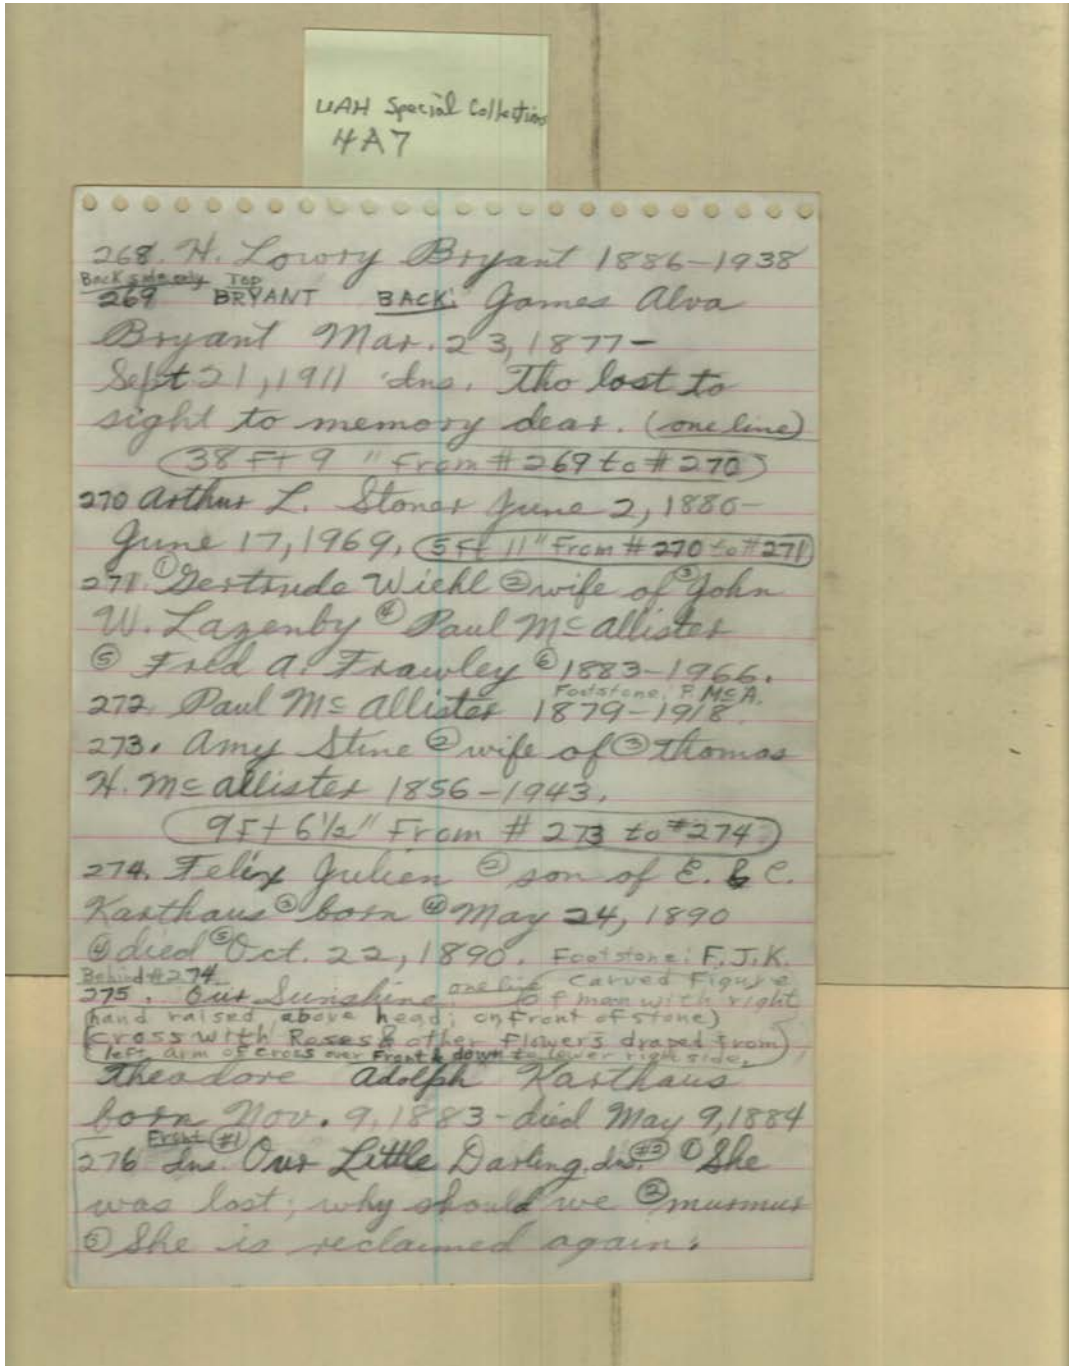 UAH Special Collection
4A7
268. H. Lowry Bryant 1886-1938
Back side only Top
269 BRYANT BACK: James Alva
Bryant Mar. 23, 1877-
Sept 21, 1911 dns. Tho lost to
sight to memory dear. (one line)
38 Ft 9 " From # 269 to # 270
270 Arthur L. Stoner June 2, 1880-
June 17, 1969. 5 Ft 11" From # 270 to #271
271. ① Gertrude Wiehl ② wife of ③ John
W. Lazenby ④ Paul McAllister
⑤ Fred A. Frawley ⑥ 1883-1966.
Footstone: P. McA.
272. Paul McAllister 1879-1918.
273. Amy Stine ② wife of ③ Thomas
H. McAllister 1856-1943.
9 Ft 6 1/2" From # 273 to #274
274. Felix Julien ② son of E. & C.
Karthaus ③ born ④ May 24, 1890
④ died ⑤ Oct. 22, 1890. Footstone: F.J.K.
Behind #274
275. Our Sunshine. one line (Carved Figure
of man with right
hand raised above head; on front of stone)
cross with Roses & other Flowers draped from
left arm of cross over Front & down to lower right side.
Theodore Adolph Karthaus
born Nov. 9, 1883-died May 9, 1884
Front #1
276 dns. Our Little Darling. dns. #2 ① She
was lost; why should we ② murmur
③ She is reclaimed again.